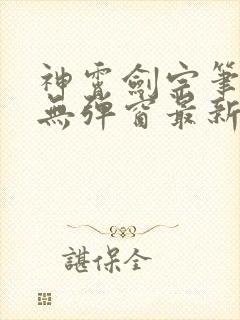 神霄劍宗筆
無彈窗最新
諶保全